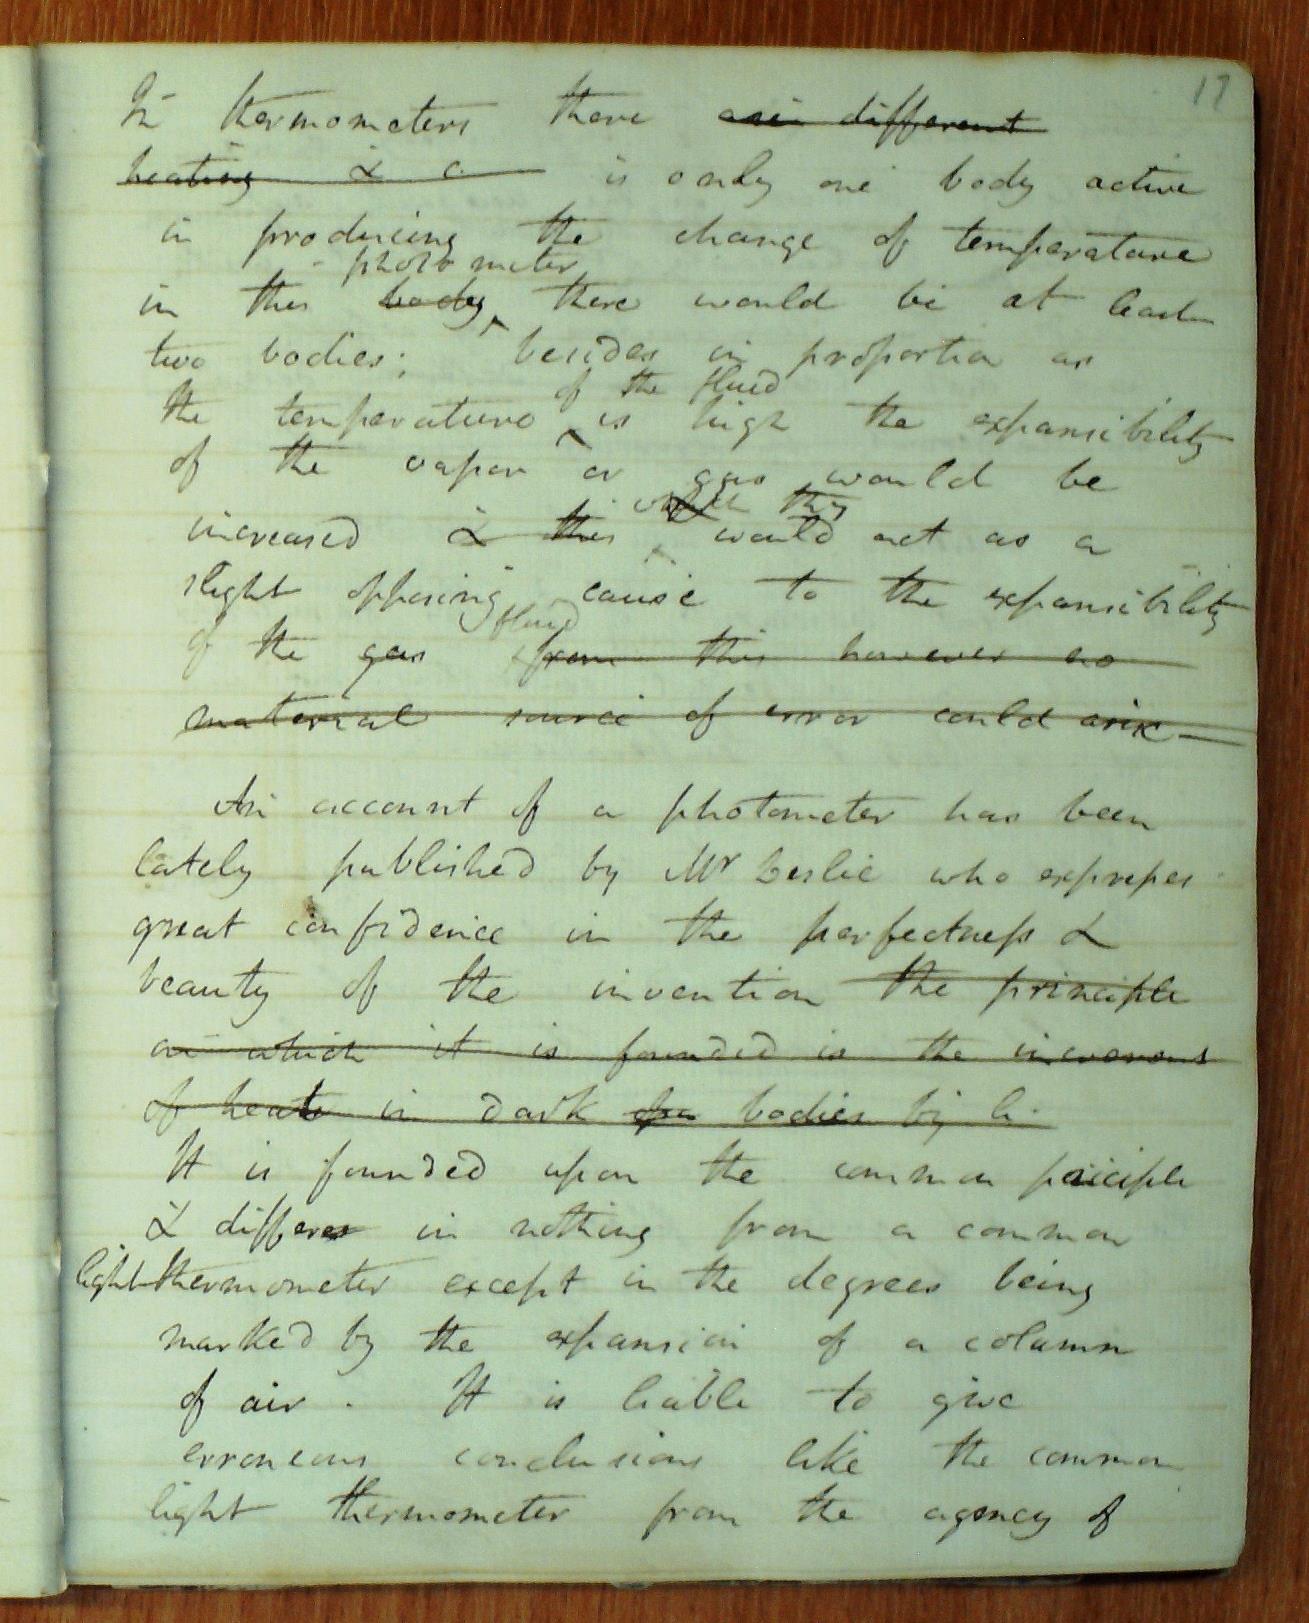 17
In thermometers there are different
heating & c. is only one body active
in producing the change of temperature
photometer
in this body there would be at least
two bodies; besides in proportion as
of the fluid
the temperature is high the expansibility
of the vapor or gas would be
which this
increased & this would act as a
slight opposing cause to the expansibility
fluid
of the gas from this however no
material source of error could arise
An account of a photometer has been
lately published by Mr Leslie who expresses
great confidence in the perfectness &
beauty of the invention the principle
on which it is founded is the
of heat in dark bodies by
It is founded upon the common priciple
& differes in nothing from a common
light thermometer except in the degrees being
marked by the expansion of a column
of air. It is liable to give
erroneous conclusions like the common
light thermometer from the agency of